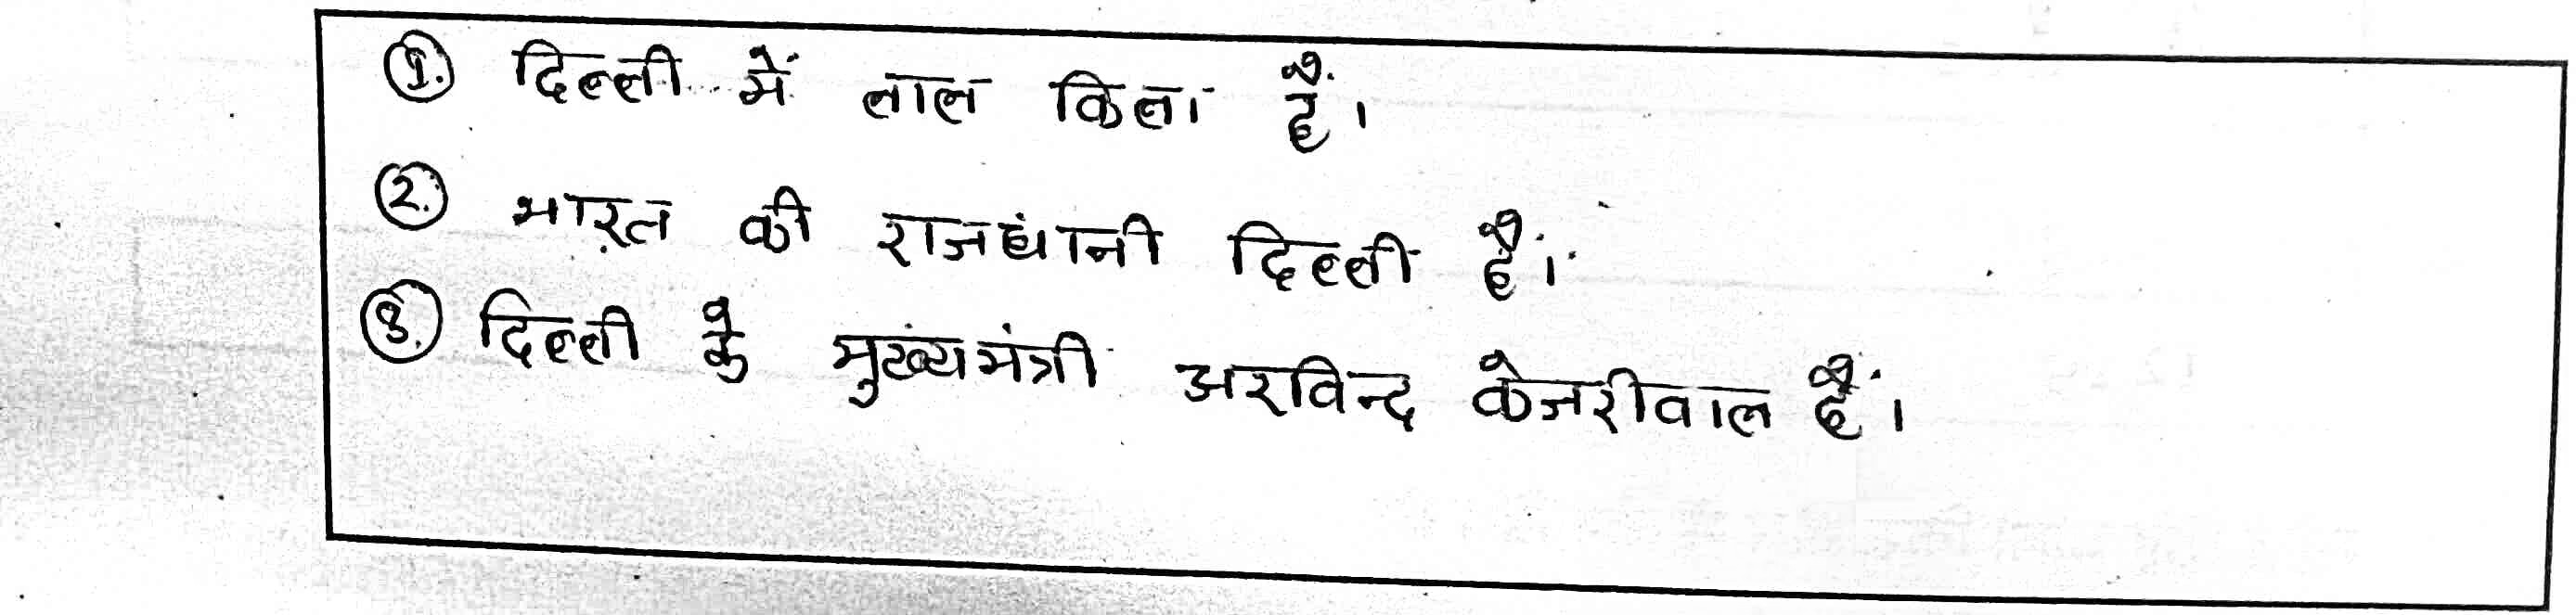 1. दिल्ली में लाल किला है।
2. भारत की राजधानी दिल्ली है।
3. दिल्ली के मुख्यमंत्री अरविन्द केजरीवाल हैं।